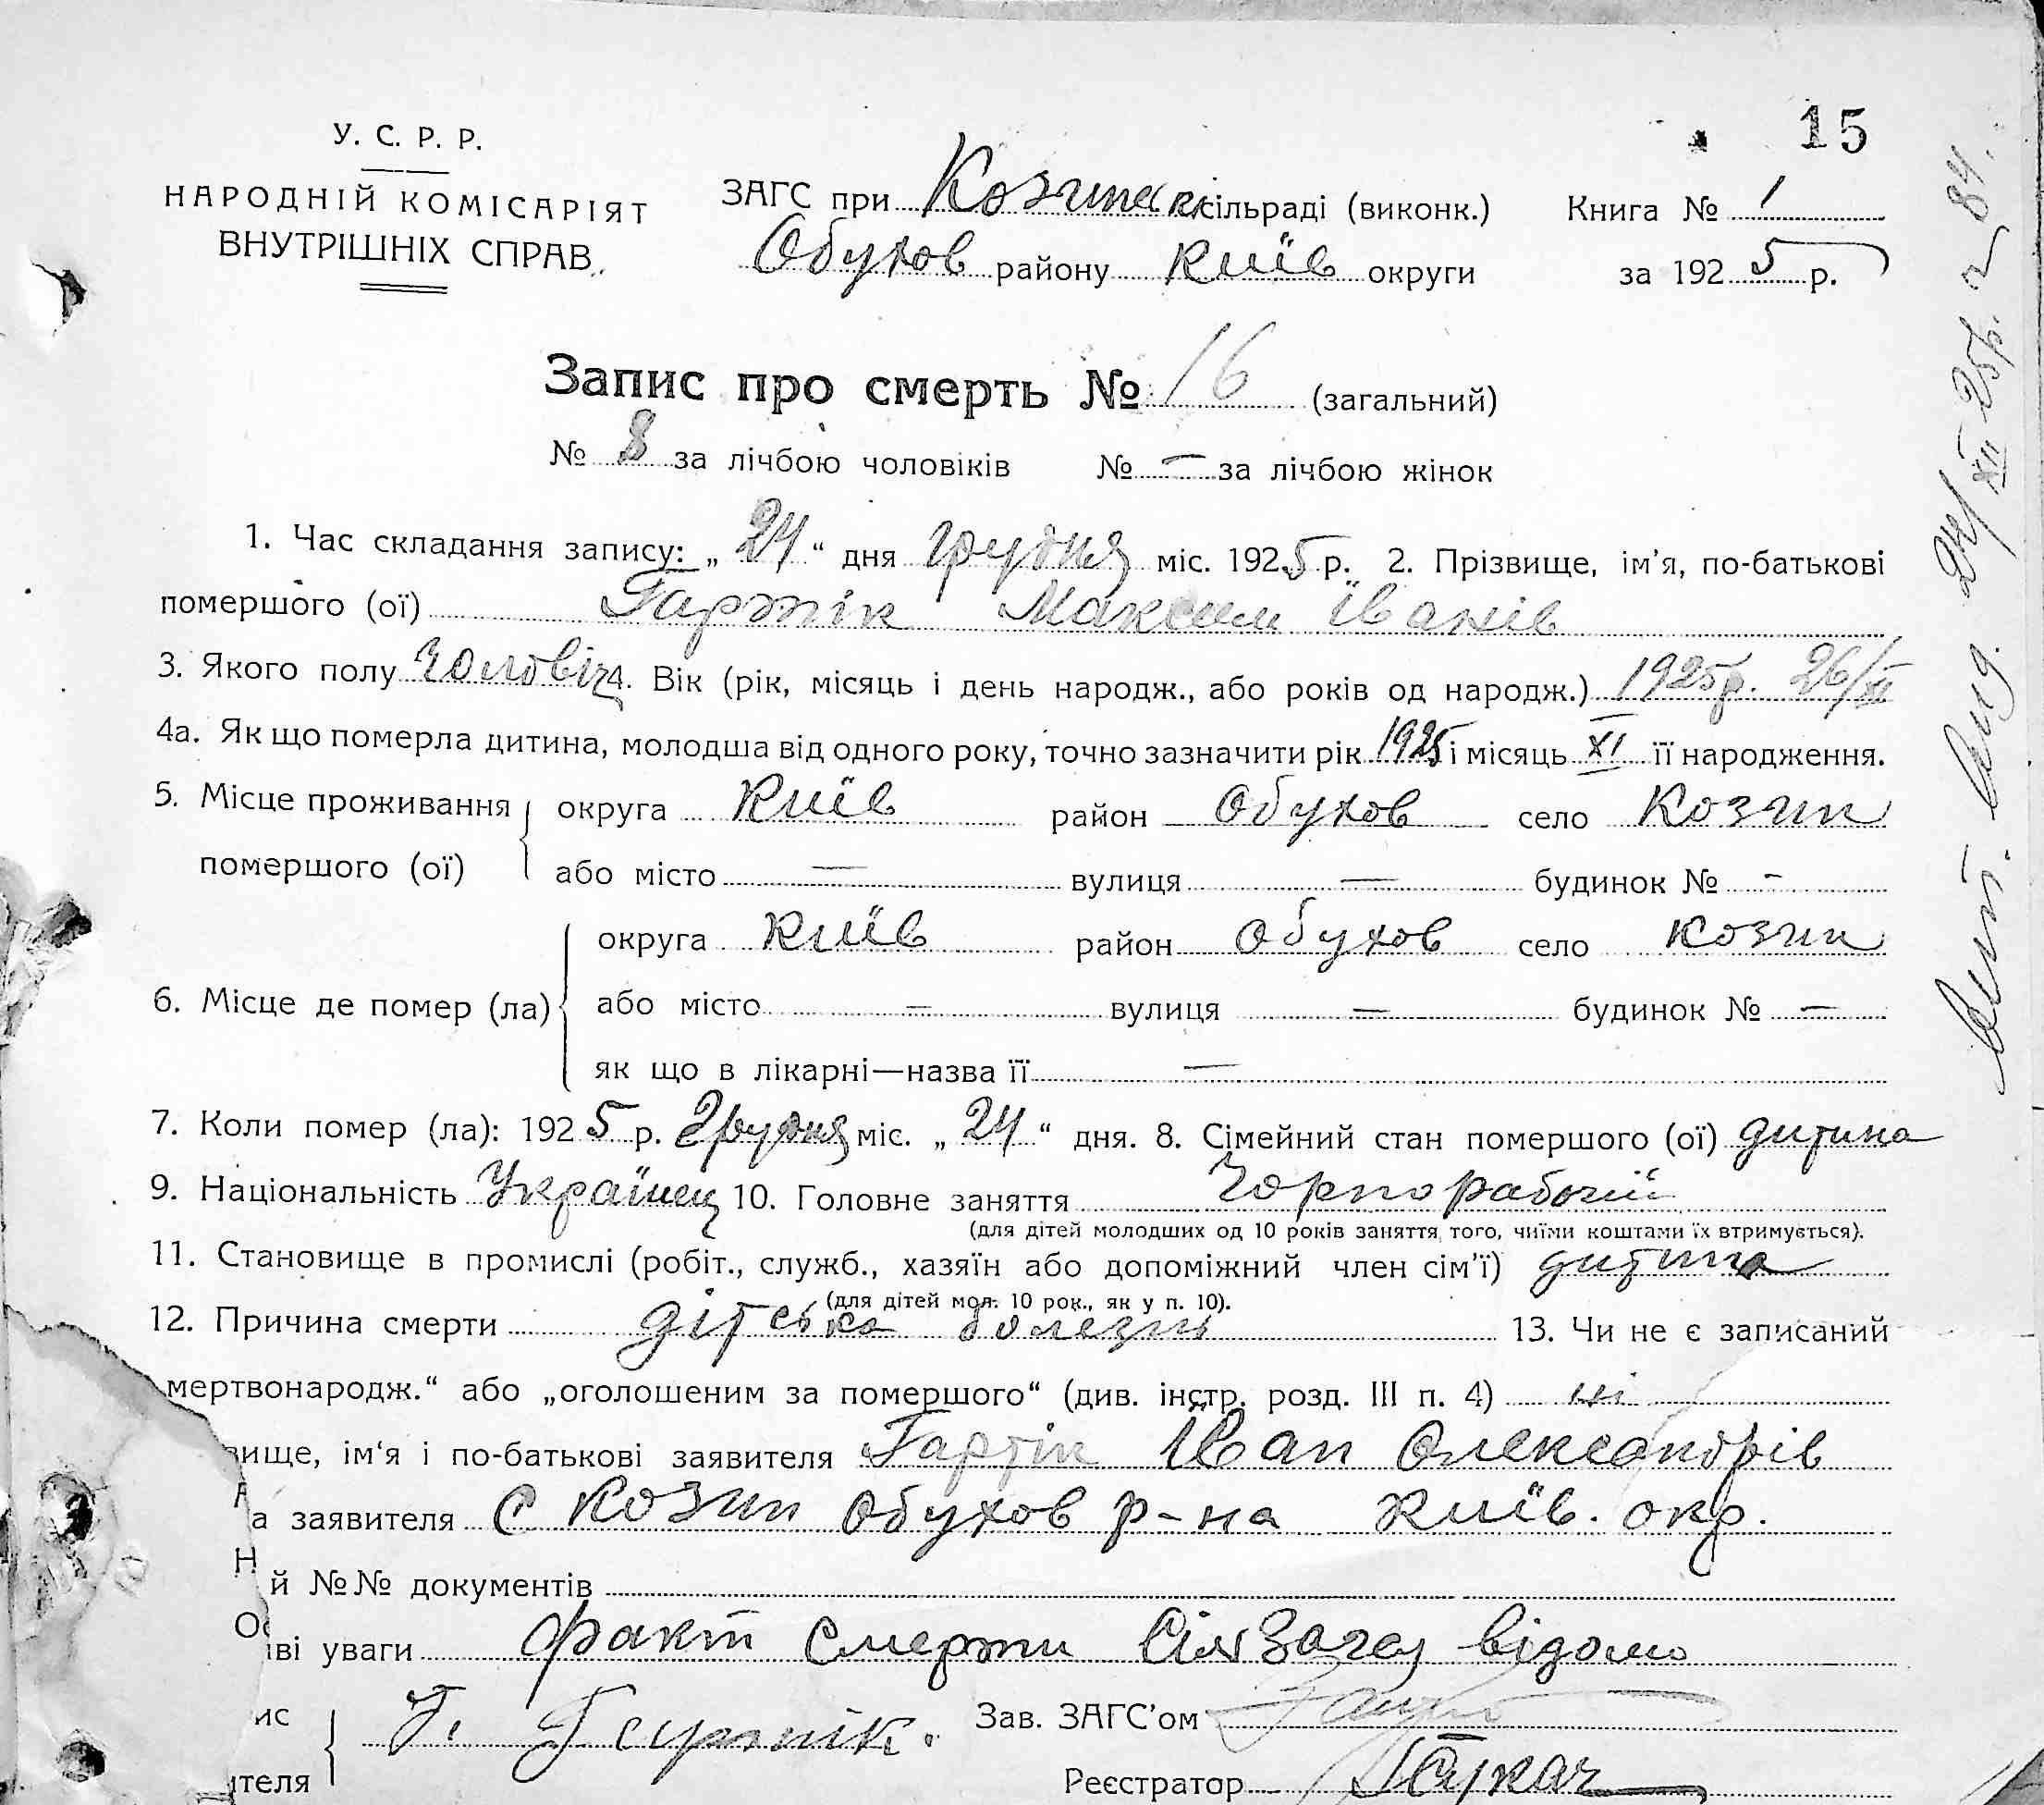 15
У. С. Р. Р.
НАРОДНІЙ КОМІСАРІЯТ
ВНУТРІШНІХ СПРАВ
ЗАГС при Козинск сільраді (виконк.) Книга № 1
Обухов району Київ округи за 1925 р.
Запис про смерть № 16 (загальний)
№ 8 за лічбою чоловіків № — за лічбою жінок
1. Час складання запису: „24“ дня грудня міс. 1925 р. 2. Прізвище, ім'я, по-батькові
помершого (ої) Гартік Максим Іванів
3. Якого полу чоловіч 4. Вік (рік, місяць і день народж., або років од народж.) 1925р. 26/XI
4а. Як що померла дитина, молодша від одного року, точно зазначити рік 1925 і місяць XI її народження.
5. Місце проживання помершого (ої) округа Київ район Обухов село Козин
або місто — вулиця — будинок № -
6. Місце де помер (ла) округа Київ район Обухов село Козин
або місто — вулиця — будинок № —
як що в лікарні—назва її —
7. Коли помер (ла): 1925 р. Грудня міс. „24“ дня. 8. Сімейний стан помершого (ої) дитина
9. Національність Українец 10. Головне заняття Чорнорабочий
(для дітей молодших од 10 років заняття того, чиїми коштами їх втримується).
11. Становище в промислі (робіт., служб., хазяїн або допоміжний член сім'ї) дитина
(для дітей мол. 10 рок., як у п. 10).
12. Причина смерти дітська болезнь 13. Чи не є записаний
мертвонародж.“ або „оголошеним за помершого“ (див. інстр. розд. III п. 4) ні
вище, ім'я і по-батькові заявителя Гартік Іван Олександрів
а заявителя с Козин Обухов р-на Київ. окр.
й №№ документів
ві уваги факт смерти СілЗагсу відомо
ис
ителя
Зав. ЗАГС'ом
Реєстратор
24/XII 25р. 84.